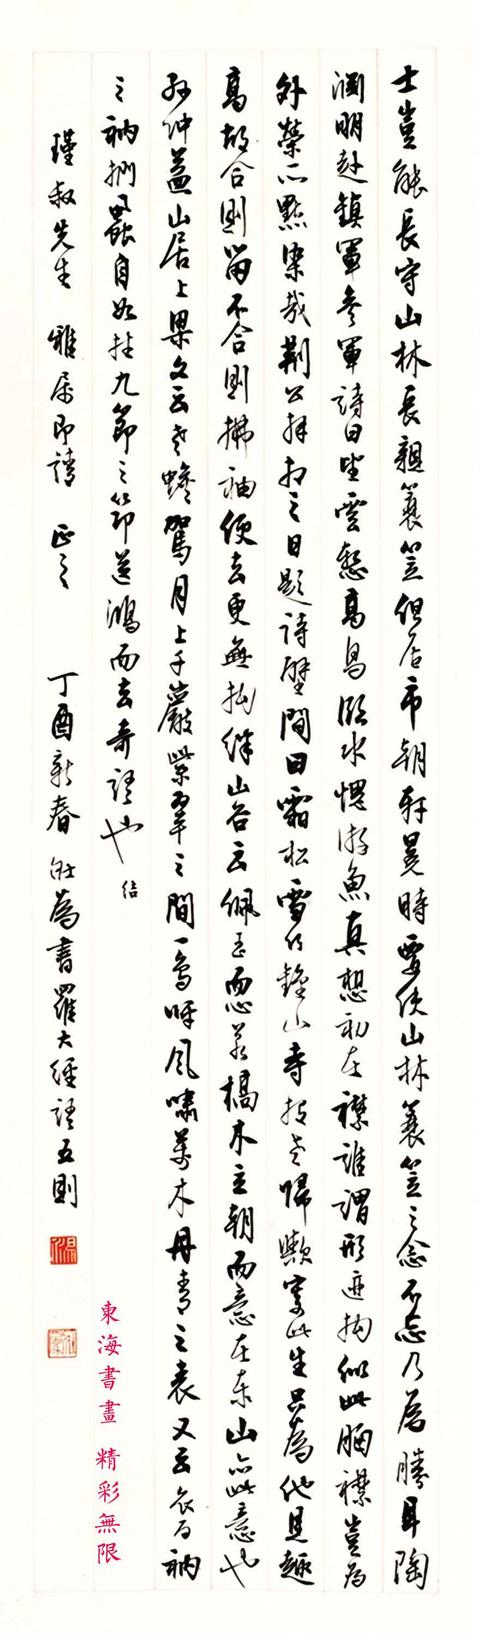 士豈能長守山林長親蓑笠但居市朝軒冕時要使山林蓑笠之念不忘乃為勝耳陶
淵明赴鎮軍參軍詩曰望雲慙高鳥臨水愧游魚真想初在襟誰謂形迹拘似此胸襟豈為
外榮所點染哉荊公拜相之日題詩壁間曰霜松雪竹鍾山寺投老歸歟寄此生只為他見趣
高故合則留不合則拂袖便去更無拘絆山谷云佩玉而心若槁木立朝而意在東山亦此意也
孫仲益山居上梁文云老蟾駕月上千巖紫翠之間一鳥呼風嘯萬木丹青之表又云衣百衲
之衲捫蝨自如拄九節之笻送鴻而去奇語也
瑾叔先生 雅屬即請 正之 丁酉新春 為書羅大經語五則
東海書畫 精彩無限